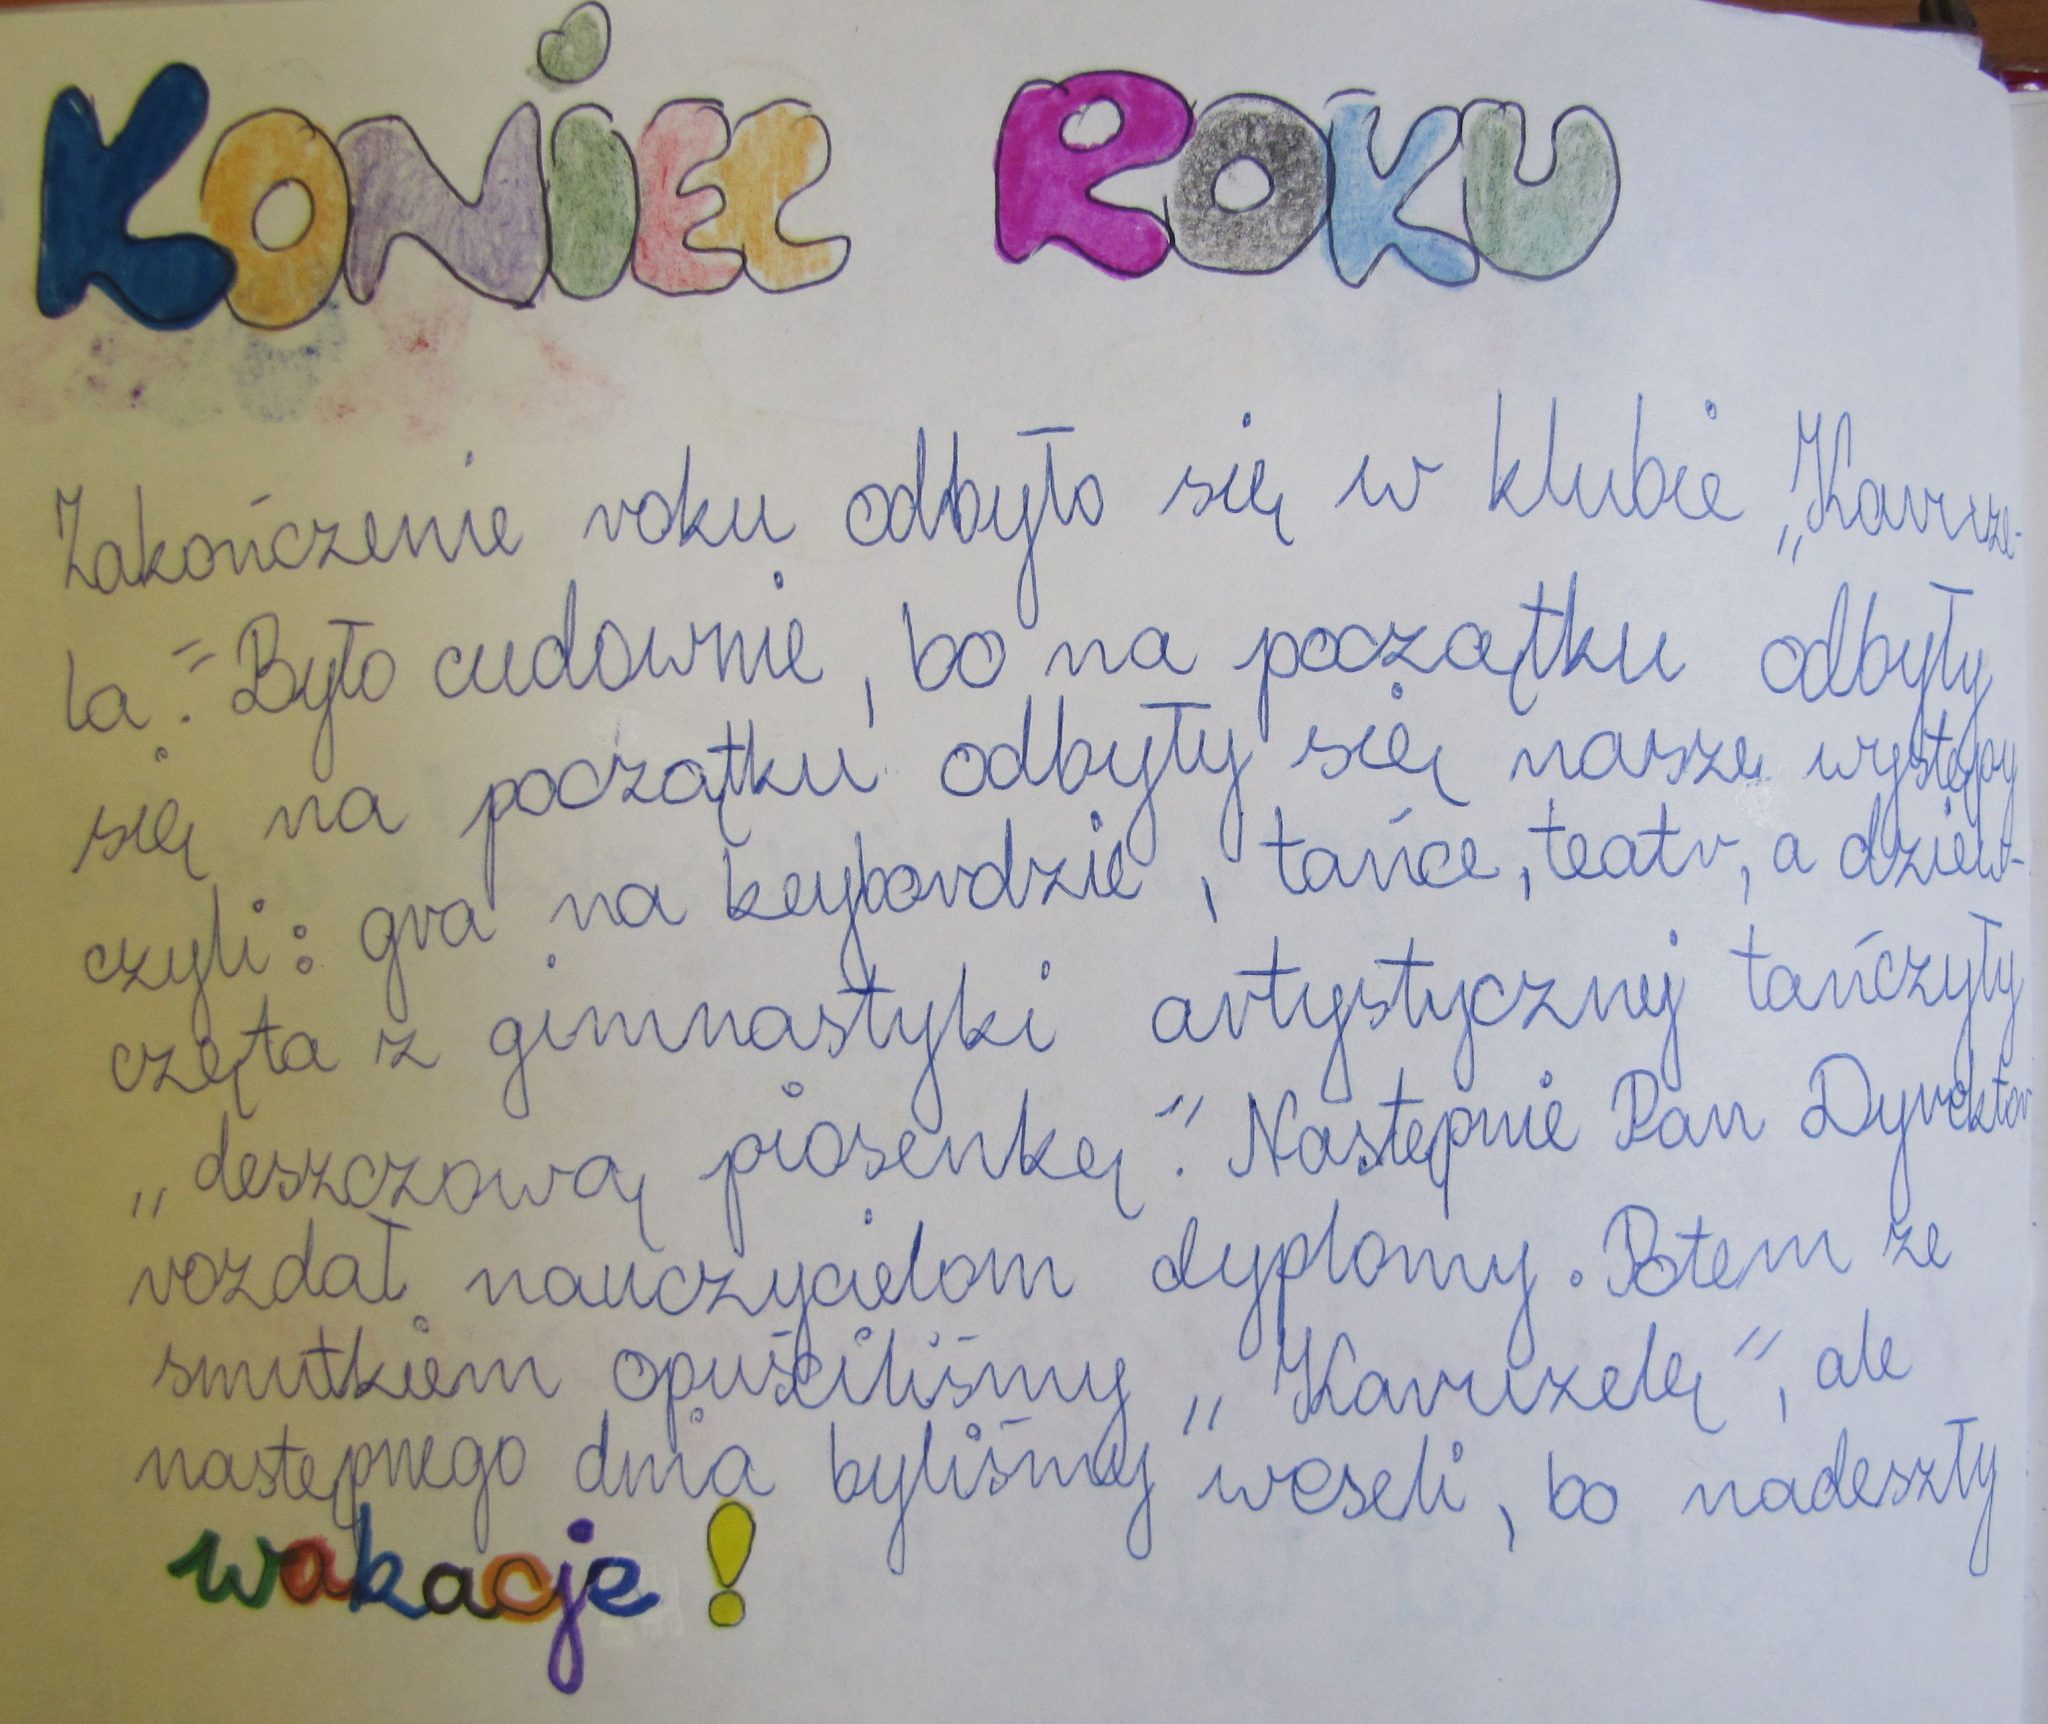 KONIEC ROKU
Zakończenie roku odbyło się w klubie „Karuze-
la." Było cudownie, bo na początku odbyły
się na początku odbyły się nasze występy
czyli: gra na keybordzie, tańce, teatr, a dziew-
częta z gimnastyki artystycznej tańczyły
„deszczową piosenkę". Następnie Pan Dyrektor
rozdał nauczycielom dyplomy. Potem ze
smutkiem opuściliśmy „Karuzelę", ale
następnego dnia byliśmy weseli, bo nadeszły
wakacje!